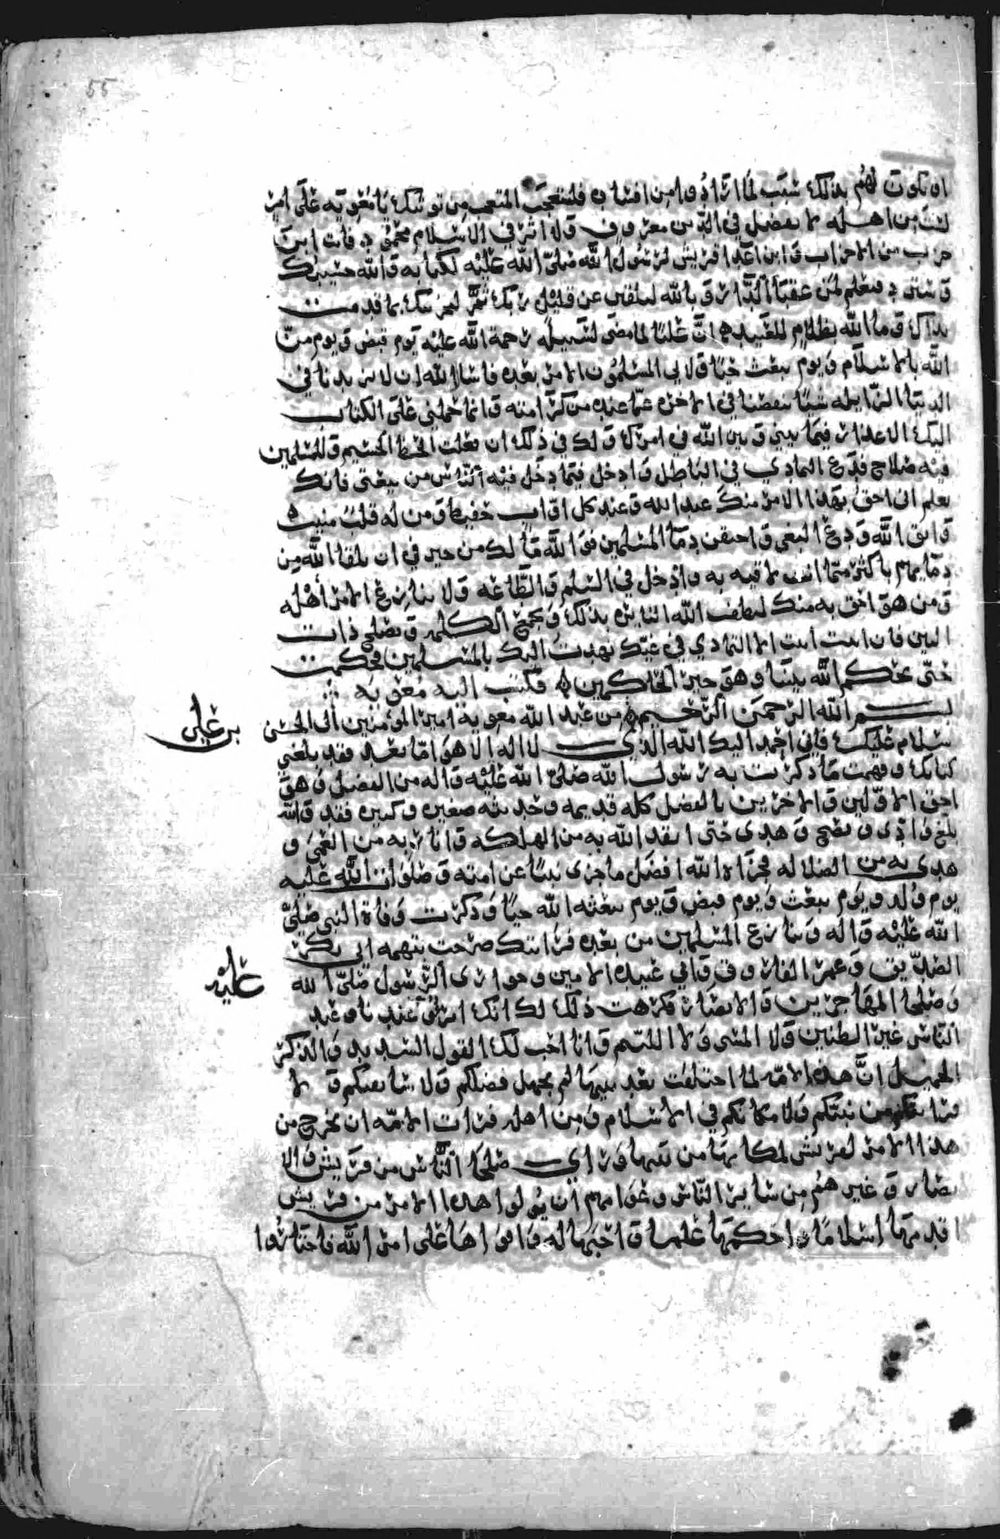 55
ان يكون لهم بذلك سبب لما ارادوا من افساد فليتعجب المتعجب من توثبك يا معويه على امر
لست من اهله لا بفضل في الدين معروف ولا اثر في الاسلام محمود فانت ابن
حرب من الاحزاب وابن اعدا قريش لرسول الله صلى الله عليه لكتابه والله حسيبك
وسترد فتعلم لمن عقبا الدار وبالله لتلقين عن قليل ربك ثم ليجزينك بما قدمت
يداك وما الله بظلام للعبيد ان عليا لما مضى لسبيله رحمة الله عليه يوم قبض ويوم من
الله بالاسلام ويوم يبعث حيا ولاني المسلمون الامر بعده فاسال الله ان لا يزيدنا في
الدنيا الزايله شيئا ينقصنا في الاخره عما عنده من كرامته وانما حملني على الكتاب
اليك الاعذار فيما بيني وبين الله في امرك ولك في ذلك ان فعلت الحظ الجسيم وللمسلمين
فيه صلاح فدع التمادي في الباطل وادخل فيما دخل فيه الناس من بيعتي فانك
تعلم اني احق بهذا الامر منك عند الله وعند كل اواب حفيظ ومن له قلب منيب
واتق الله ودع البغي واحقن دما المسلمين فو الله ما لك من خير في ان تلقا الله من
دمايهم باكثر مما انت لاقيه به وادخل في السلم والطاعه ولا تنازع الامر اهله
ومن هو احق به منك ليطف الله النايره بذلك ويجمع الكلمه ويصلح ذات
البين فان انت ابيت الا التمادي في غيك نهدت اليك بالمسلمين فحاكمتك
حتى يحكم الله بيننا وهو خير الحاكمين فكتب اليه معويه
بسم الله الرحمن الرحيم من عبد الله معويه امير المومنين الى الحسن
بن علي
سلام عليك فاني احمد اليك الله الذي لا اله الا هو اما بعد فقد بلغني
كتابك وفهمت ما ذكرت به رسول الله صلى الله عليه واله من الفضل وهو
احق الاولين والاخرين بالفضل كله قديمه وحديثه صغيره وكبيره فقد والله
بلغ وادى ونصح وهدى حتى انقذ الله به من الهلكه وانار به من العمى و
هدى به من الضلاله فجزاه الله افضل ما جزى نبيا عن امته وصلوات الله عليه
يوم ولد ويوم يبعث ويوم قبض ويوم يبعثه الله حيا وذكرت وفاة النبي صلى
الله عليه واله وتنازع المسلمين من بعده فرايتك صرحت بتهمه ابي بكر
الصديق وعمر الفاروق وابي عبيده الامين وحواري الرسول صلى الله
عليه
وصلحا المهاجرين والانصار فكرهت ذلك لك انك امرؤ عندنا وعند
الناس غير الظنين ولا المسي ولا اللئيم وانا احب لك القول السديد والذكر
الجميل ان هذه الامه لما اختلفت بعد نبيها لم تجهل فضلكم ولا سابقتكم ولا
قرابتكم من نبيكم ولا مكانكم في الاسلام ومن اهله فرات الامه ان يخرج من
هذا الامر لقريش لمكانها من نبيها وراى صلحا الناس من قريش والا
نصار وغيرهم من ساير الناس وعوامهم ان يولوا هذا الامر من قريش
اقدمها اسلاما واحكمها علما واحبها له واقواها على امر الله فاختاروا